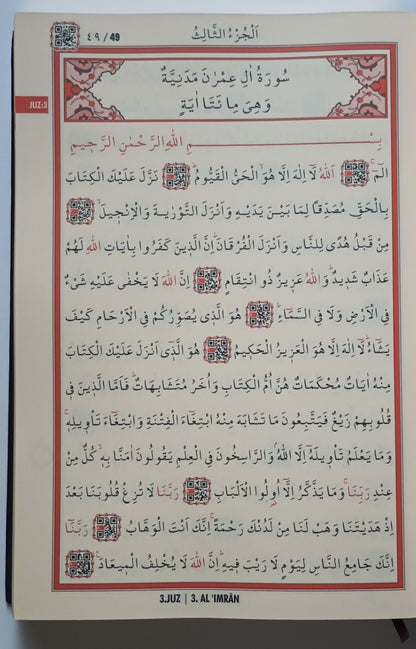 ٤٩ / 49
اَلْجُزْءُ الثَّالِثُ
JUZ:3
سُورَةُ اٰلِ عِمْرٰنَ مَدَنِيَّةٌ
وَهِيَ مِائَتَا اٰيَةٍ
بِسْــــــــــــمِ اللّٰهِ الرَّحْمٰنِ الرَّحِيمِ
الٓمٓ ۚ اَللّٰهُ لَٓا اِلٰهَ اِلَّا هُوَۙ الْحَيُّ الْقَيُّومُۜ نَزَّلَ عَلَيْكَ الْكِتَابَ
بِالْحَقِّ مُصَدِّقًا لِمَا بَيْنَ يَدَيْهِ وَاَنْزَلَ التَّوْرٰيةَ وَالْاِنْج۪يلَۙ
مِنْ قَبْلُ هُدًى لِلنَّاسِ وَاَنْزَلَ الْفُرْقَانَۜ اِنَّ الَّذ۪ينَ كَفَرُوا بِاٰيَاتِ اللّٰهِ لَهُمْ
عَذَابٌ شَد۪يدٌۜ وَاللّٰهُ عَز۪يزٌ ذُو انْتِقَامٍ اِنَّ اللّٰهَ لَا يَخْفٰى عَلَيْهِ شَيْءٌ
فِي الْاَرْضِ وَلَا فِي السَّمَٓاءِۜ هُوَ الَّذ۪ي يُصَوِّرُكُمْ فِي الْاَرْحَامِ كَيْفَ
يَشَٓاءُۜ لَٓا اِلٰهَ اِلَّا هُوَ الْعَز۪يزُ الْحَك۪يمُ هُوَ الَّذ۪ٓي اَنْزَلَ عَلَيْكَ الْكِتَابَ
مِنْهُ اٰيَاتٌ مُحْكَمَاتٌ هُنَّ اُمُّ الْكِتَابِ وَاُخَرُ مُتَشَابِهَاتٌۜ فَاَمَّا الَّذ۪ينَ ف۪ي
قُلُوبِهِمْ زَيْغٌ فَيَتَّبِعُونَ مَا تَشَابَهَ مِنْهُ ابْتِغَٓاءَ الْفِتْنَةِ وَابْتِغَٓاءَ تَأْو۪يلِه۪ۚ
وَمَا يَعْلَمُ تَأْو۪يلَهُٓ اِلَّا اللّٰهُۢ وَالرَّاسِخُونَ فِي الْعِلْمِ يَقُولُونَ اٰمَنَّا بِه۪ۙ كُلٌّ مِنْ
عِنْدِ رَبِّنَاۚ وَمَا يَذَّكَّرُ اِلَّٓا اُو۬لُوا الْاَلْبَابِ رَبَّنَا لَا تُزِغْ قُلُوبَنَا بَعْدَ
اِذْ هَدَيْتَنَا وَهَبْ لَنَا مِنْ لَدُنْكَ رَحْمَةًۚ اِنَّكَ اَنْتَ الْوَهَّابُ رَبَّنَٓا
اِنَّكَ جَامِعُ النَّاسِ لِيَوْمٍ لَا رَيْبَ ف۪يهِۜ اِنَّ اللّٰهَ لَا يُخْلِفُ الْم۪يعَادَ۟
3.JUZ | 3. AL 'IMRÂN